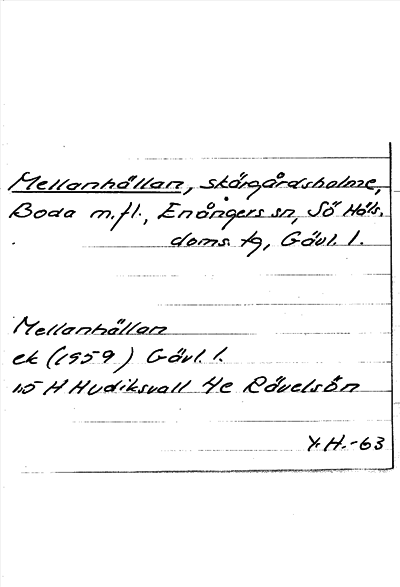 Mellanhällan, skärgårdsholme,
Boda m.fl., Enångers sn, Sö Häls.
doms. tg, Gävl. l.
Mellanhällan
ek (1959) Gävl. l.
15 H Hudiksvall 4e Rävelsön
Y.H.-63